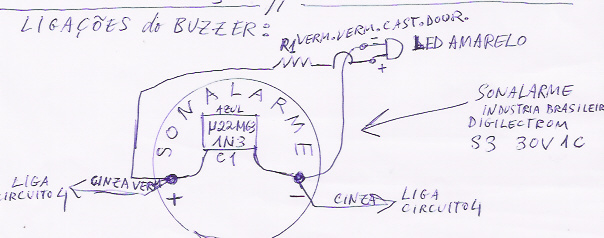 LIGAÇÕES do BUZZER:
R1 VERM. VERM. CAST. DOUR.
LED AMARELO
- 
+
SONALARME
AZUL
µ22M63
1N3
C1
SONALARME
INDUSTRIA BRASILEIR
DIGILECTRON
S3 30V 1C
LIGA
CIRCUITO 4
CINZA VERM
+
-
CINZA
LIGA
CIRCUITO 4